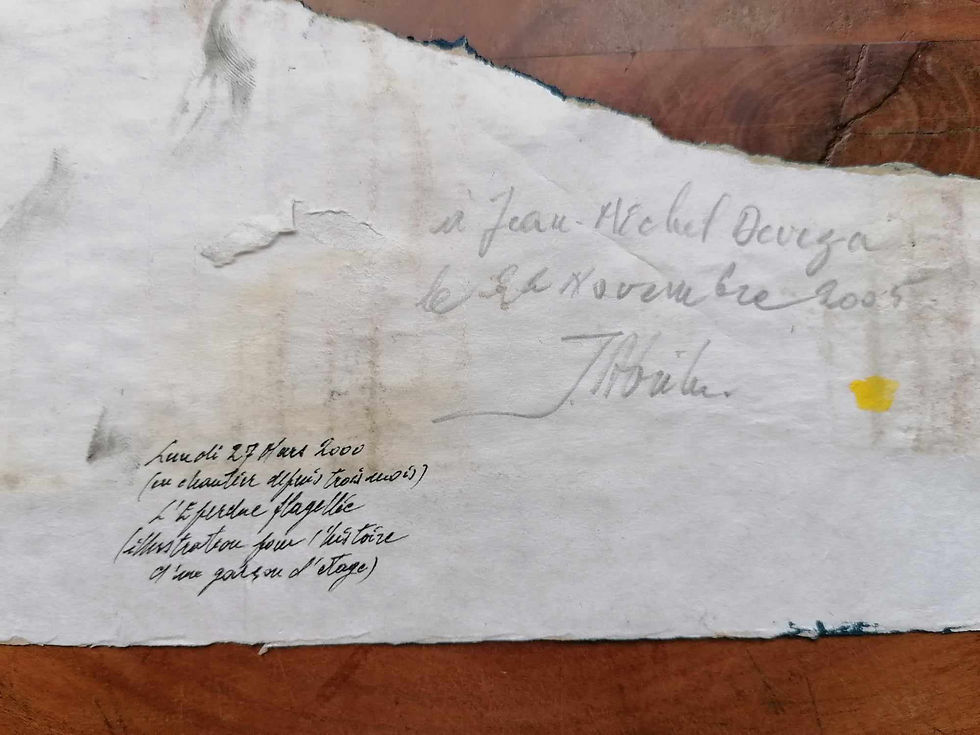 à Jean-Michel Devésa
le Novembre 2005
Lundi 27 Mars 2000
(en chantier depuis trois mois)
L'Eperdue flagellée
(illustration pour l'histoire
d'un garçon d'étage)